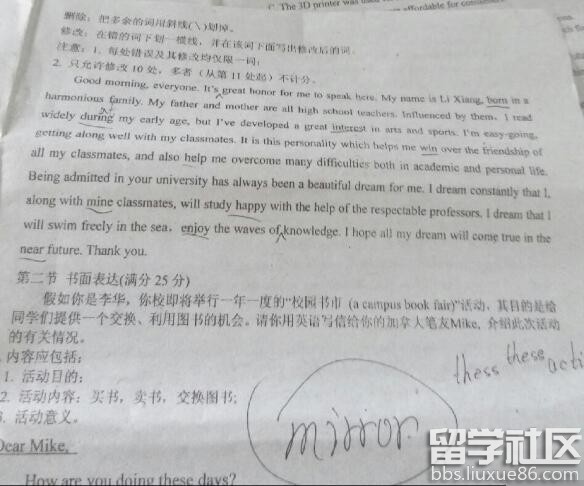 C. The 3D printer was
affordable for consum
删除：把多余的词用斜线(\)划掉。
修改：在错的词下划一横线，并在该词下面写出修改后的词。
注意：1. 每处错误及其修改均仅限一词；
2. 只允许修改 10 处，多者（从第 11 处起）不计分。
Good morning, everyone. It's great honor for me to speak here. My name is Li Xiang, born in a
harmonious family. My father and mother are all high school teachers. Influenced by them, I read
widely during my early age, but I've developed a great interest in arts and sports. I'm easy-going,
getting along well with my classmates. It is this personality which helps me win over the friendship of
all my classmates, and also help me overcome many difficulties both in academic and personal life.
Being admitted in your university has always been a beautiful dream for me. I dream constantly that I,
along with mine classmates, will study happy with the help of the respectable professors. I dream that I
will swim freely in the sea, enjoy the waves of knowledge. I hope all my dream will come true in the
near future. Thank you.
第二节 书面表达(满分 25 分)
假如你是李华，你校即将举行一年一度的“校园书市 (a campus book fair)”活动，其目的是给
同学们提供一个交换、利用图书的机会。请你用英语写信给你的加拿大笔友Mike, 介绍此次活动
的有关情况。
内容应包括：
1. 活动目的；
2. 活动内容：买书，卖书，交换图书；
3. 活动意义。
thess these acti
mirror
Dear Mike,
How are you doing these days?
留学社区
bbs.liuxue86.com